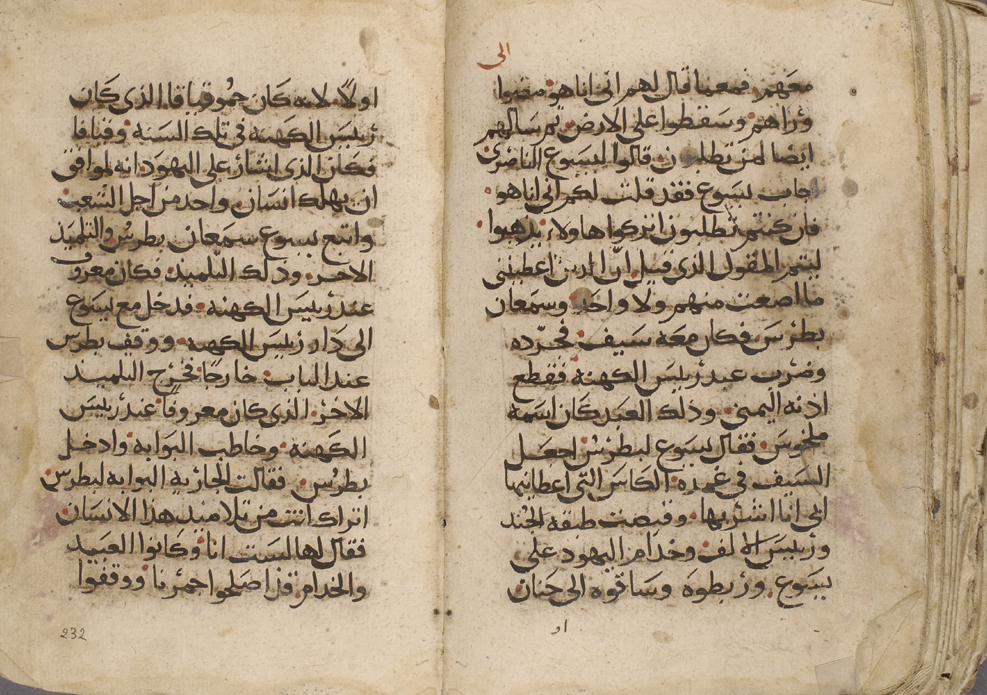 الى
معهم فمعما قال لهم انى انا هو مضوا
وراهم وسقطوا على الارض ثم سالهم
ايضا لمن تطلبون قالوا ليسوع الناصرى
اجاب يسوع فقد قلت لكم انى انا هو
فان كنتم تطلبون اتركوا هاولاء يذهبوا
ليتم المقول الذى قيل ان الدين اعطيتنى
ما اضعت منهم ولا واحد وسمعان
بطرس فكان معه سيف فجرده
وضرب عبد رييس الكهنه فقطع
اذنه اليمنى وذلك العبد كان اسمه
ملخوس فقال يسوع لبطرس اجعل
السيف في غمده الكاس التى اعطانيها
ابى انا اشربها وقبضت طبقه الجند
ورييس الالف وخدام اليهود على
يسوع وربطوه وساقوه الى حنان
او
اولا لانه كان حمو قيافا الذى كان
رييس الكهنه في تلك السنه وقيافا
فكان الذى اشار على اليهود انه لموافق
ان يهلك انسان واحد من اجل الشعب
واتبع يسوع سمعان بطرس والتلميذ
الاخر وذلك التلميد فكان معروف
عند رييس الكهنه فدخل مع يسوع
الى دار رييس الكهنه ووقف بطرس
عند الباب خارجا فخرج التلميد
الاخر الذى كان معروفا عند رييس
الكهنه وخاطب البوابه وادخل
بطرس فقالت الجاريه البوابه لبطرس
اتراك انت من تلاميد هذا الانسان
فقال لها لست انا وكانوا العبيد
والخدام قد اصلحوا جمرنا ووقفوا
232